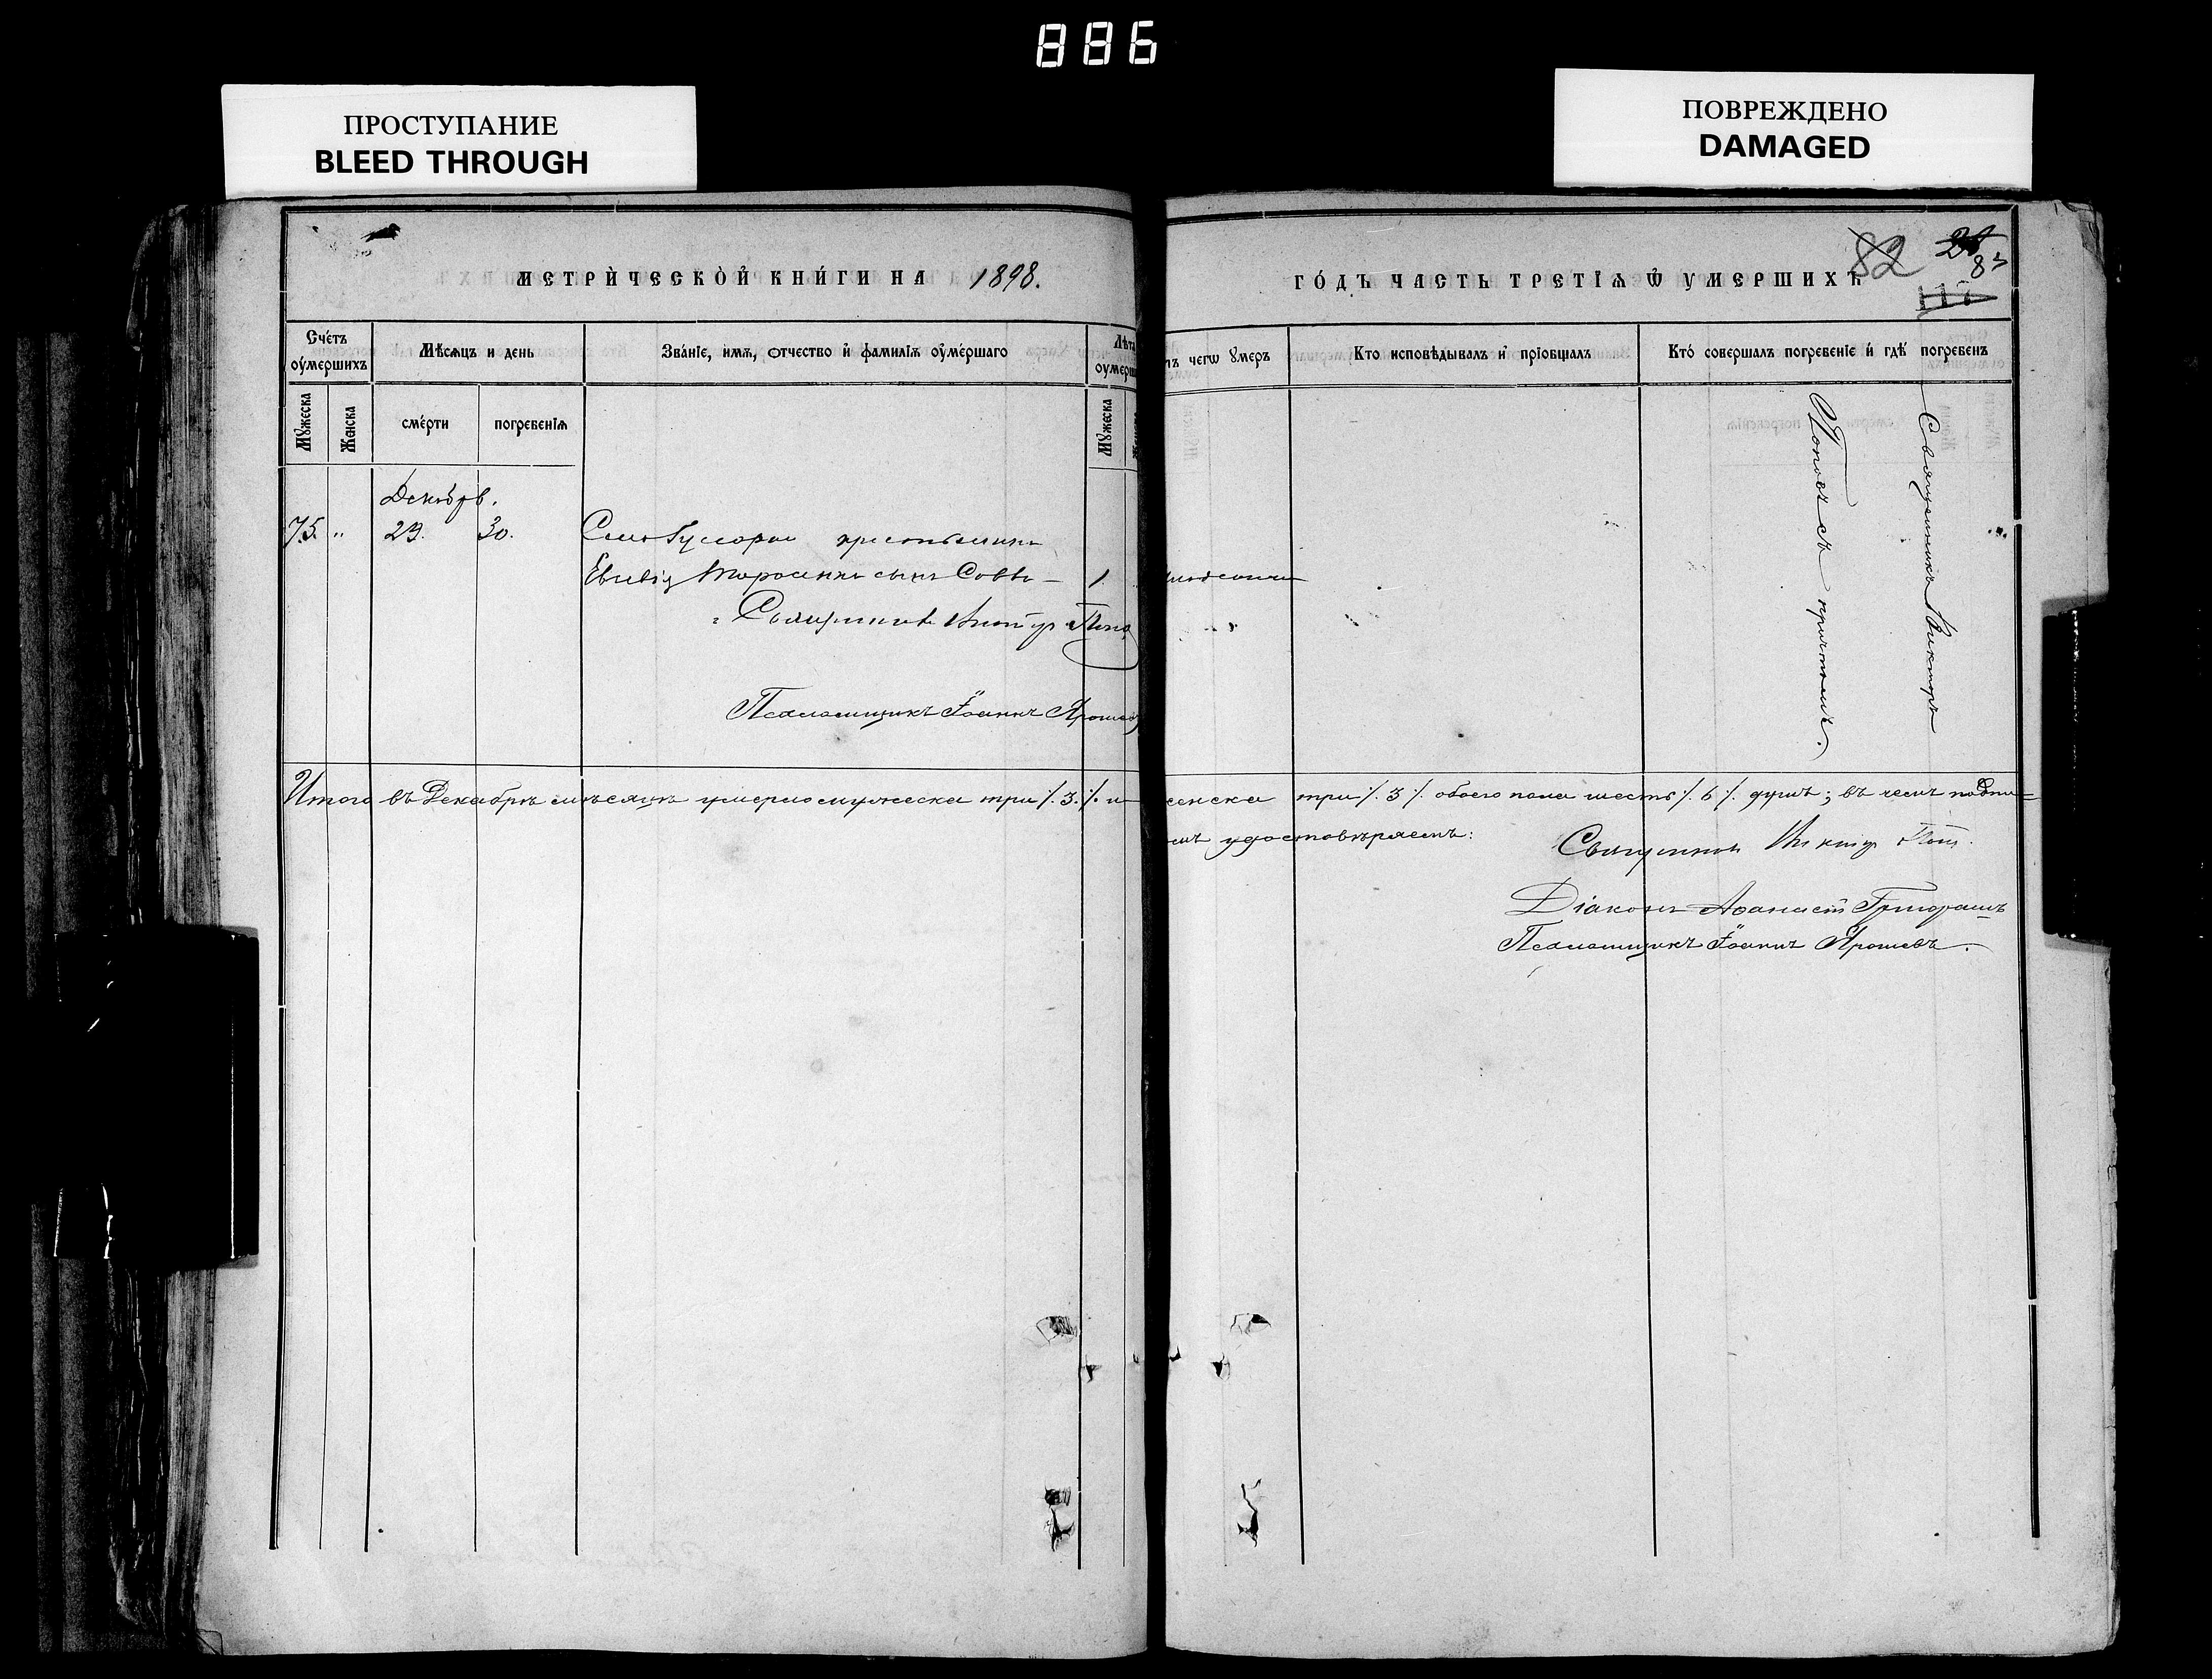 886
ПРОСТУПАНИЕ
BLEED THROUGH
ПОВРЕЖДЕНО
DAMAGED
МЕТРИ́ЧЕСКО́Й КНИ́ГИ НА 1898.
ГО́ДЪ ЧАСТЬ ТРЕТІѦ Ѿ УМЕРШИХЪ
82
Сче́тъ оу́мершихъ
Мѣсѧцъ и день
Зва́ніе, имѧ, отчество и҆ фамилїѧ оу҆ме́ршаго
Лѣта оумерш
чегѡ ꙋмеръ
Кто исповѣдывалъ и҆ прїобщалъ
Кто́ совершалъ погребенїе и҆ гдѣ̀ погребенъ
Мꙋжеска
Женска
сме́рти
погребенїѧ
Мꙋжеска
Декабрь.
75. " 29. 30. крестьянинъ
сынъ Савва 1
Священникъ Викторъ
Псаломщикъ Іоаннъ Ярошев
Священникъ Викторъ
съ причтомъ.
Итого въ Декабрѣ мѣсяцѣ умерло мужеска три /.3./. и женска три /.3./. обоего пола шесть /.6./. душъ; въ чемъ подпи=
удостовѣряемъ:
Священникъ Викторъ
Діаконъ Аѳанасій Григорашъ
Псаломщикъ Іоаннъ Ярошевъ.